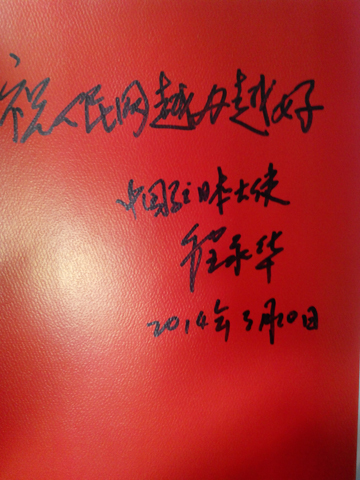 祝人民网越办越好
中国驻日本大使
程永华
2014年5月20日